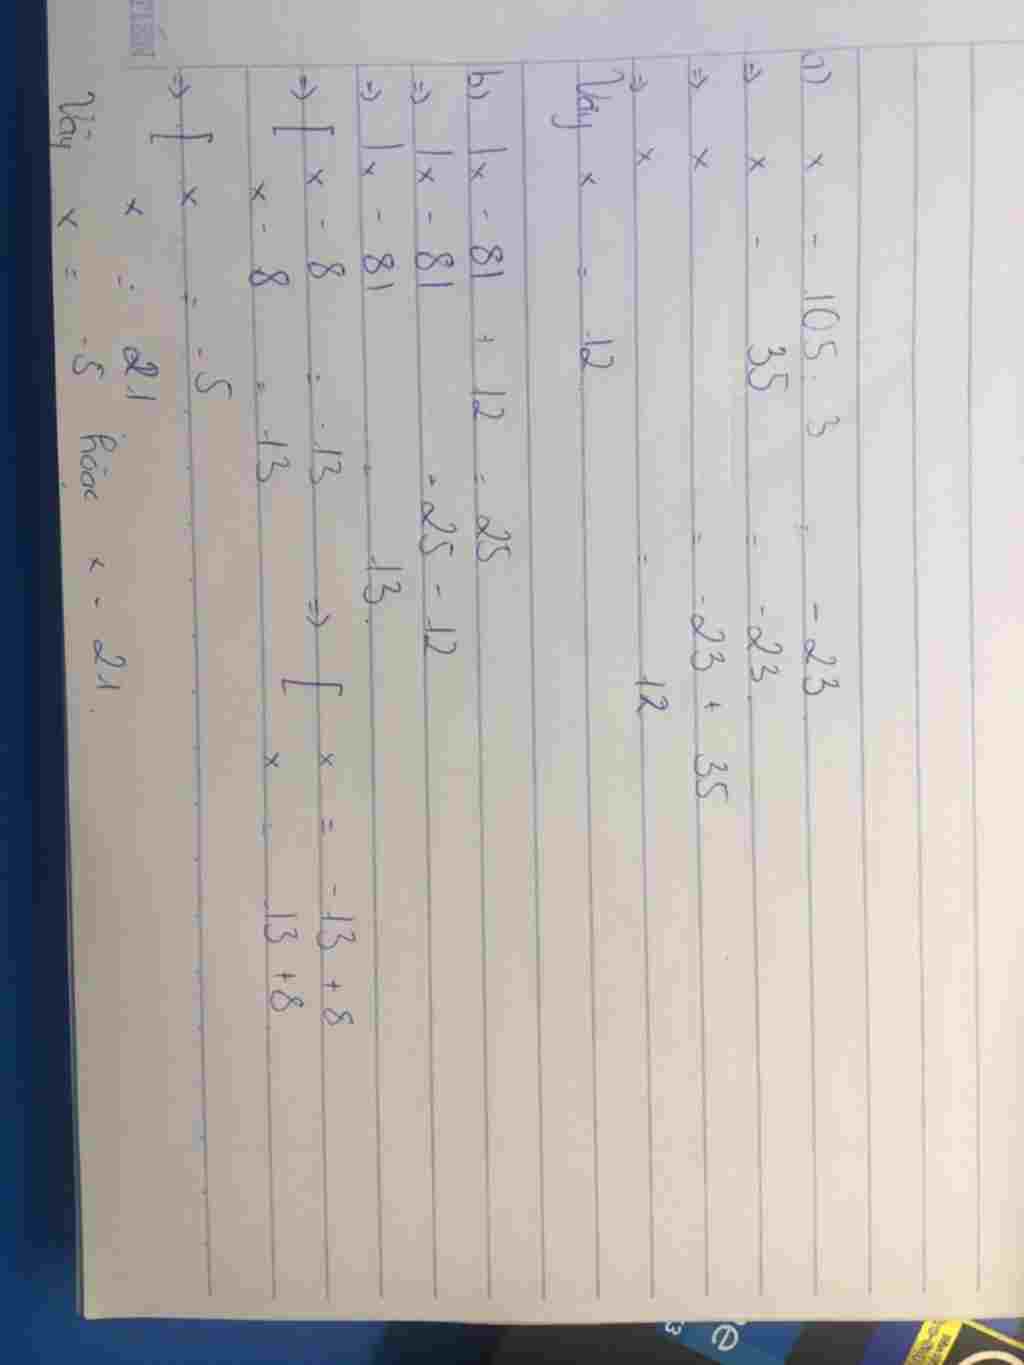 a) x - 105 : 3 = -23
=> x - 35 = -23
=> x = -23 + 35
=> x = 12
Vậy x = 12
b) |x - 8| + 12 = 25
=> |x - 8| = 25 - 12
=> |x - 8| = 13.
=> [ x - 8 = -13 => [ x = -13 + 8
x - 8 = 13 x = 13 + 8
=> [ x = -5
x = 21
Vậy x = -5 hoặc x = 21.